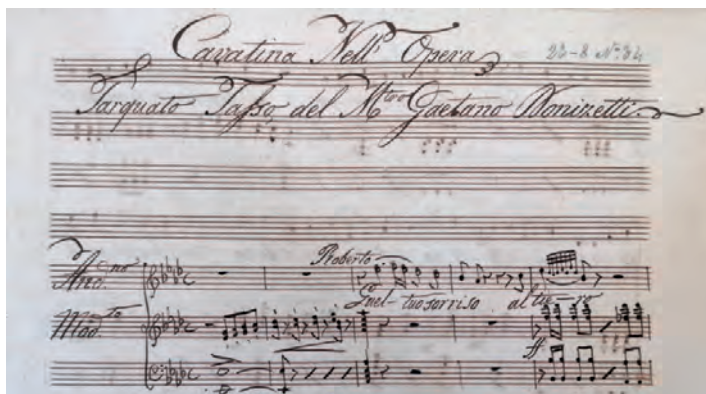 Cavatina Nell' Opera
23-8 Nº 34
Tarquato Tasso del Mtro Gaetano Donizetti.
And.no
Roberto
Quel tuo sorriso altie-ro
Mod.to
ff